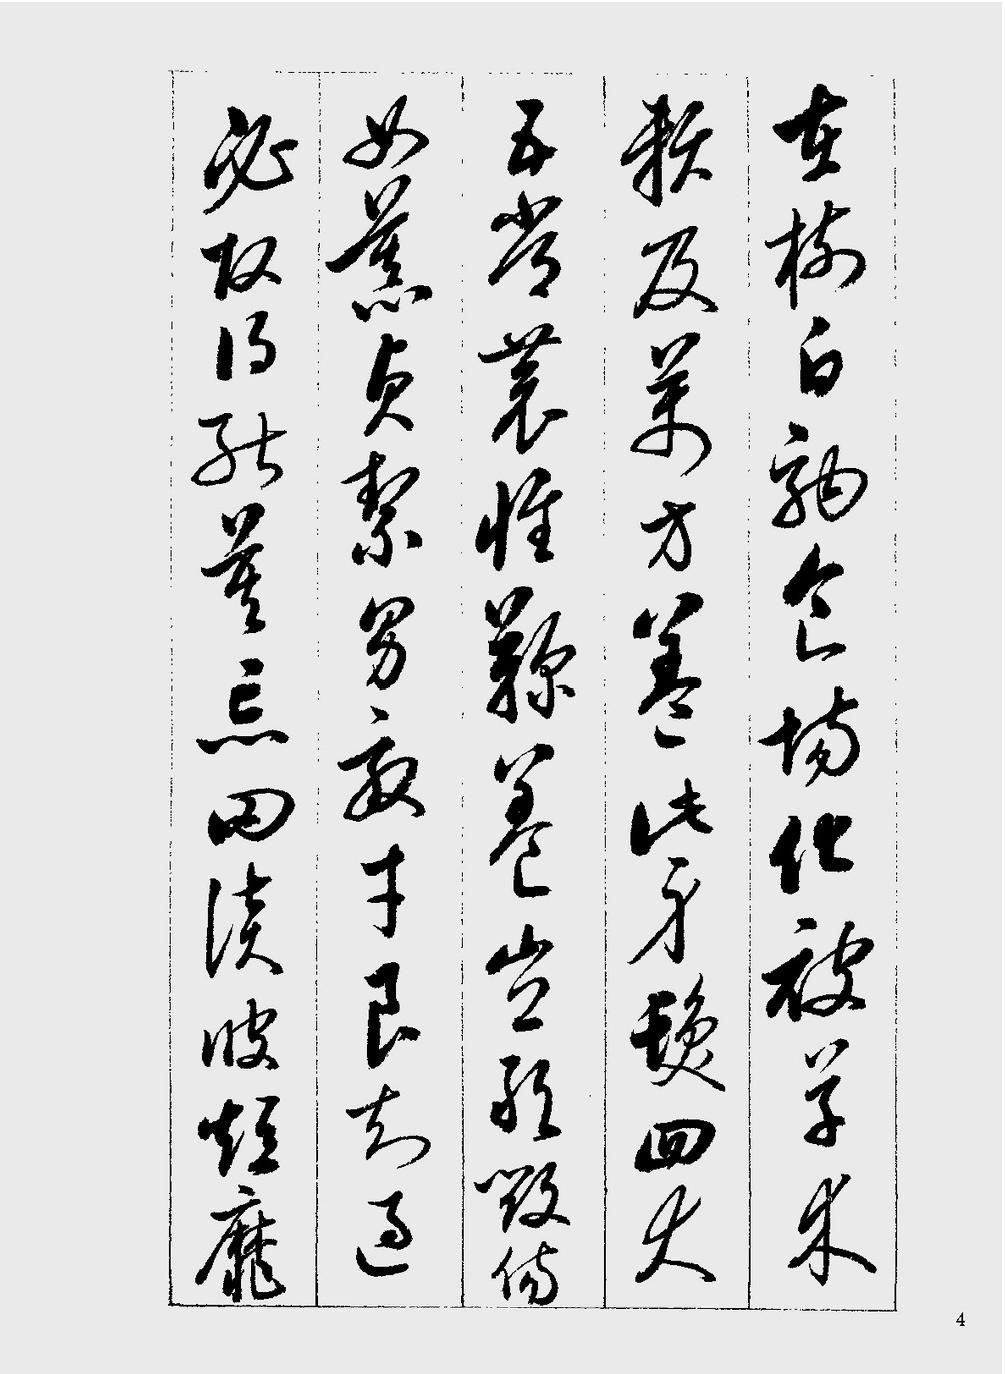 在樹白駒食場化被草木
賴及萬方蓋此身髮四大
五常恭惟鞠養豈敢毀傷
女慕貞絜男效才良知過
必改得能莫忘罔談彼短靡
4